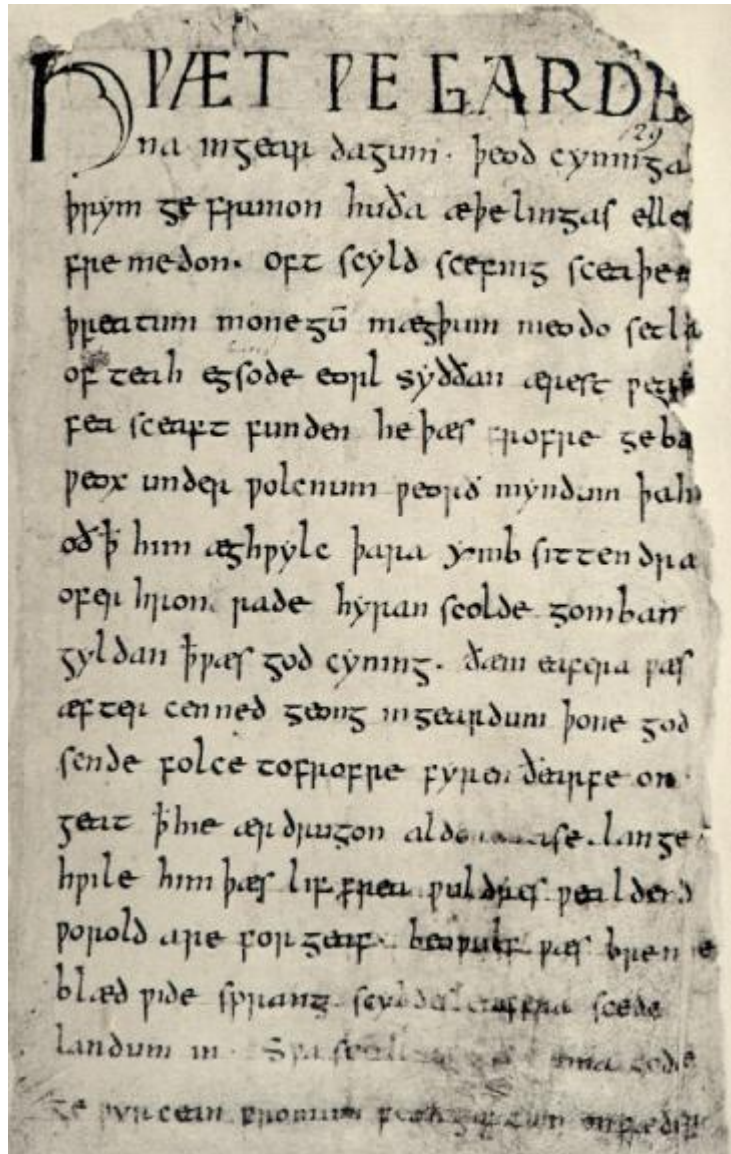 HǷÆT ǷE GARDE
129
na ingear dagum. þeod cyninga
þrym ge frunon huða æþelingas elle
fre medon. oft scyld scefing sceaþe
þreatum monegū mægþum meodo setla
of teah egsode eorl syððan ærest ƿear
fea sceaft funden he þæs frofre geba
ƿeox under ƿolcnum ƿeorð myndum þah
oð ꝥ him æghƿylc þara ymb sittendra
ofer hron rade hyran scolde gomban
gyldan ꝥ ƿæs god cyning. ðæm eafera ƿæs
æfter cenned geong ingeardum þone god
sende folce tofrofre fyren ðearfe on
geat ꝥ hie ær drugon aldo ase. lange
hƿile him þæs lif frea ƿuldres ƿealdend
ƿorold are for geaf. beoƿulf ƿæs breme
blæd ƿide sprang scyldes eafera scede
landum in. Sƿa sceal ma gode
ge ƿyrcean fromum feoh giftum on fæder